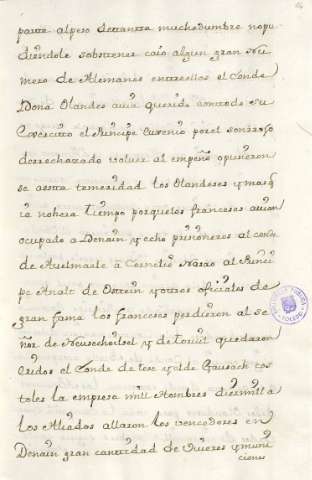 puente al peso de tanta muchedumbre no pu
diendole sobstener caio algun gran Nu
mero de Alemanes entre ellos el Conde
Dona Olandes avia querido con todo su
Exercitto el Principe Eugenio por el sonrroso
derrechattado volver al empeño opusieron
se a estta temeridad los Olandeses y mas q̃
ia no hera tiempo porque los franceses avian
ocupado a Denain y echo prisioneros al conde
de Avelmarle a Cornelio Nasao al Princi
pe Analt de y otros oficiales de
gran fama los franceses perdieron al Se
ñor de y de quedaron
eridos el Conde de tese y el de cos
toles la empresa mill Hombres diez mill a
los Aliados allaron los vencedores en
Denain gran cantidad de viveres y muni
ciones
TOLEDO